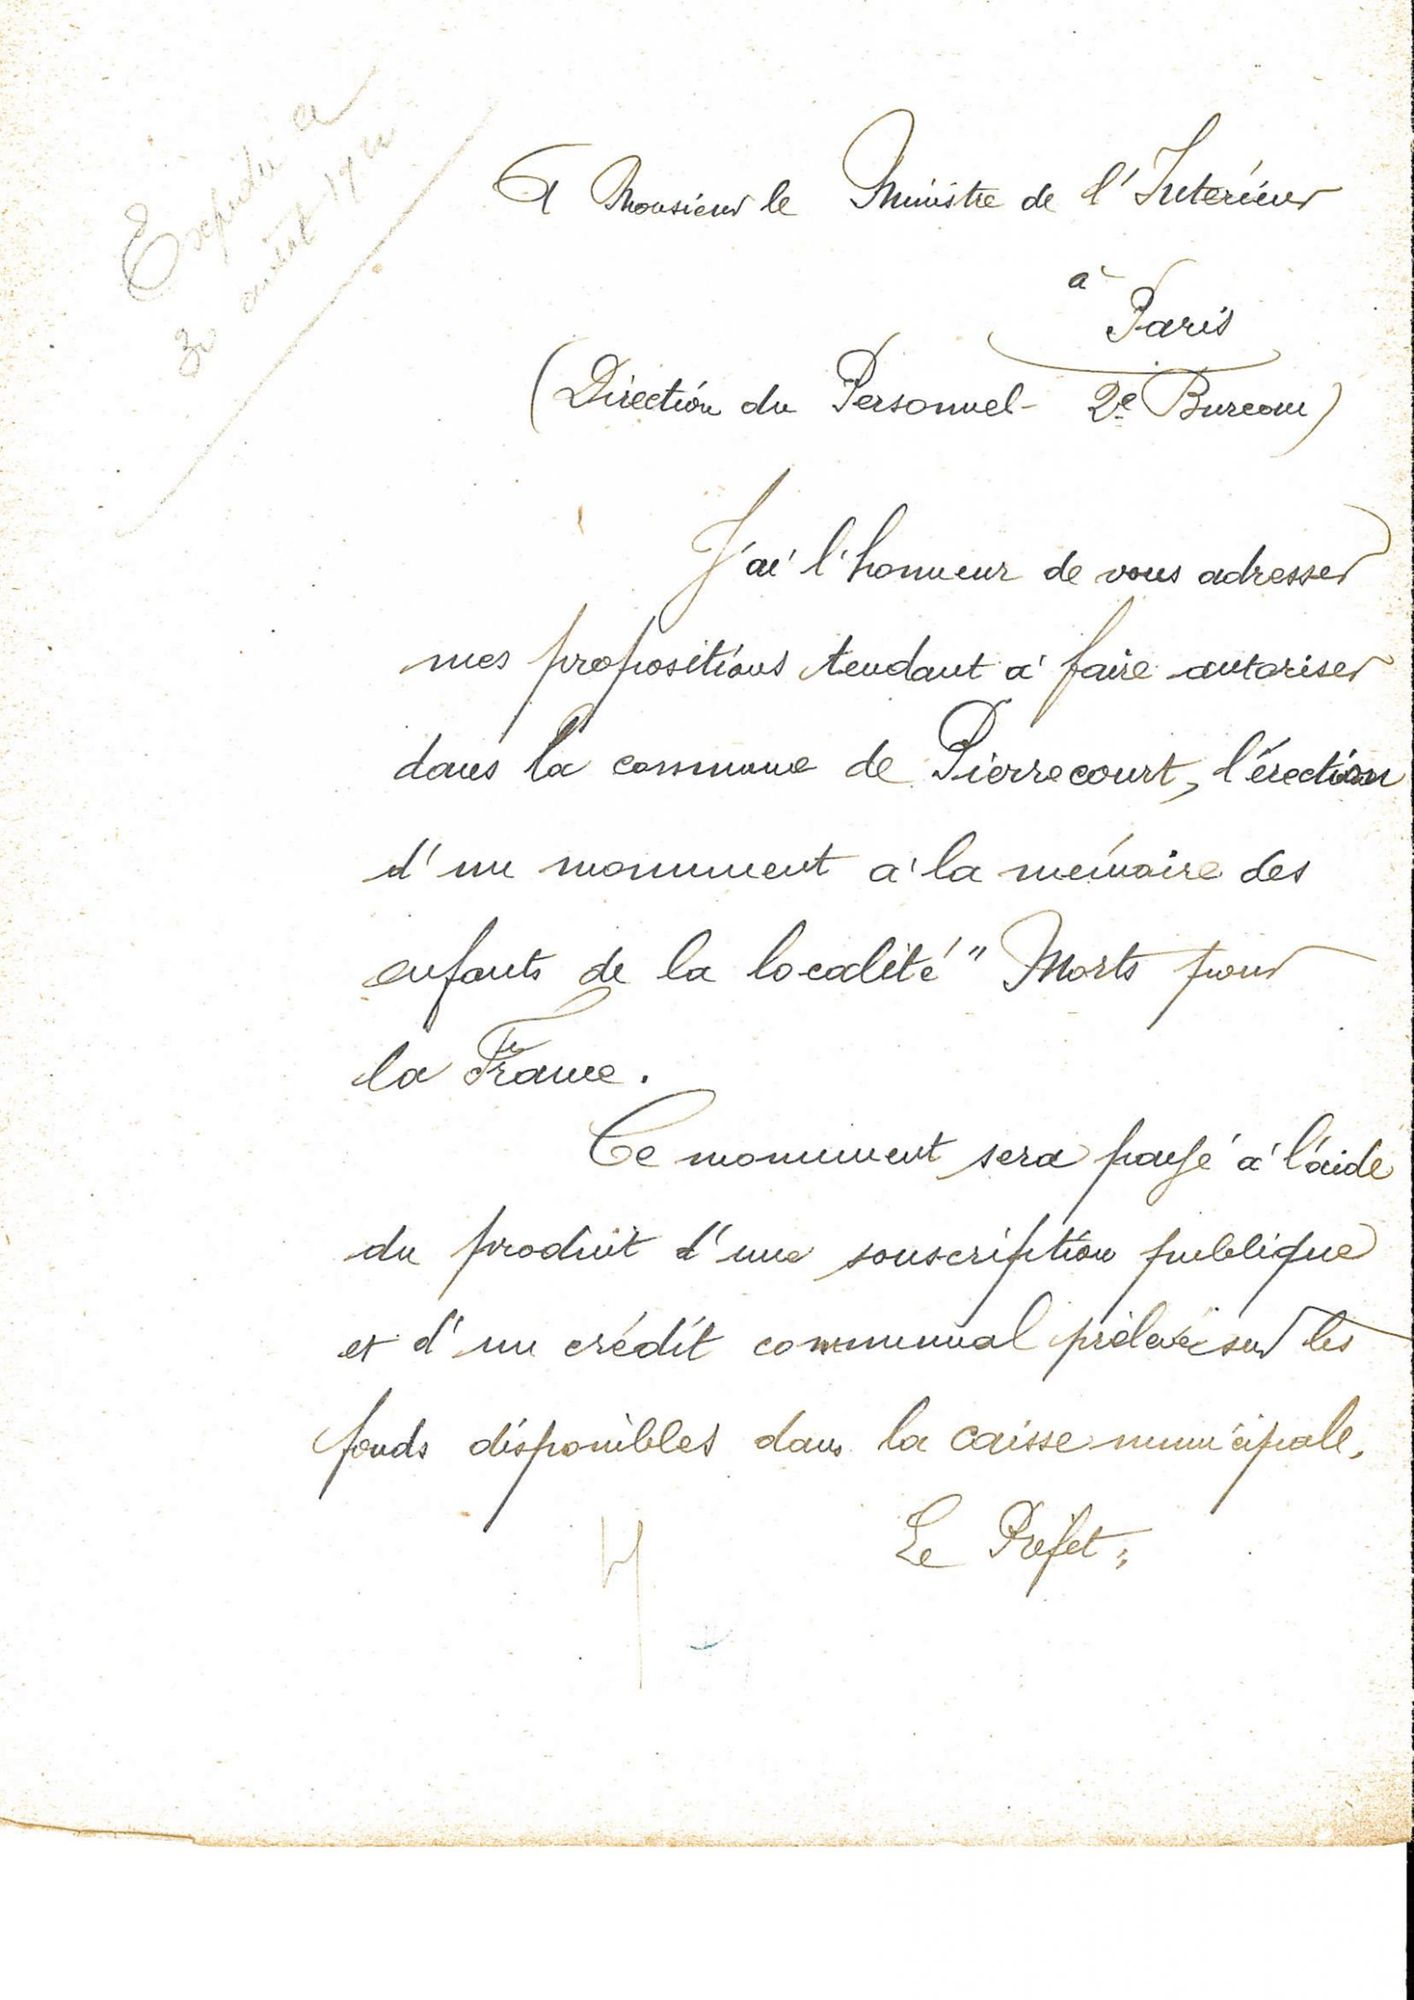 Expédié a
août
A Monsieur le Ministre de l'Intérieur
à
Paris
(Direction du Personnel - 2e Bureau)
J'ai l'honneur de vous adresser
mes propositions tendant à faire autoriser
dans la commune de Pierrecourt, l'érection
d'un monument à la mémoire des
enfants de la localité " Morts pour
la France.
Ce monument sera payé à l'aide
du produit d'une souscription publique
et d'un crédit communal prélevé sur les
fonds disponibles dans la caisse municipale.
Le Préfet,